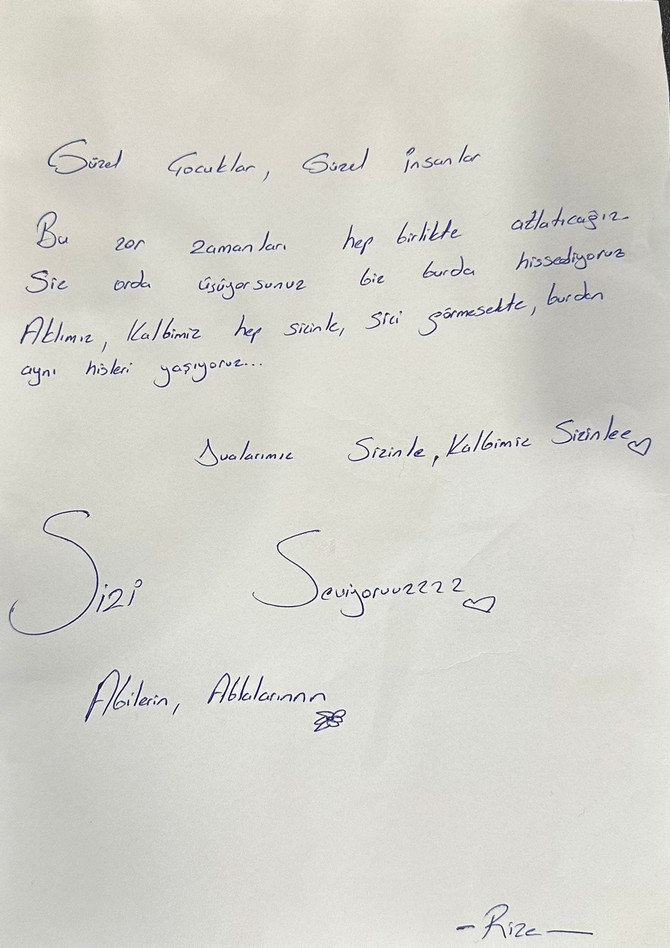 Güzel Çocuklar, Güzel insanlar
Bu zor zamanları hep birlikte atlatıcağız.
Siz orda üşüyorsunuz biz burda hissediyoruz
Aklımız, Kalbimiz hep sizinle, sizi görmesekte, burdan
aynı hisleri yaşıyoruz...
Dualarımız Sizinle, Kalbimiz Sizinlee
Sizi Seviyoruuzzzz
Abilerin, Ablalarınnn
-Rize-